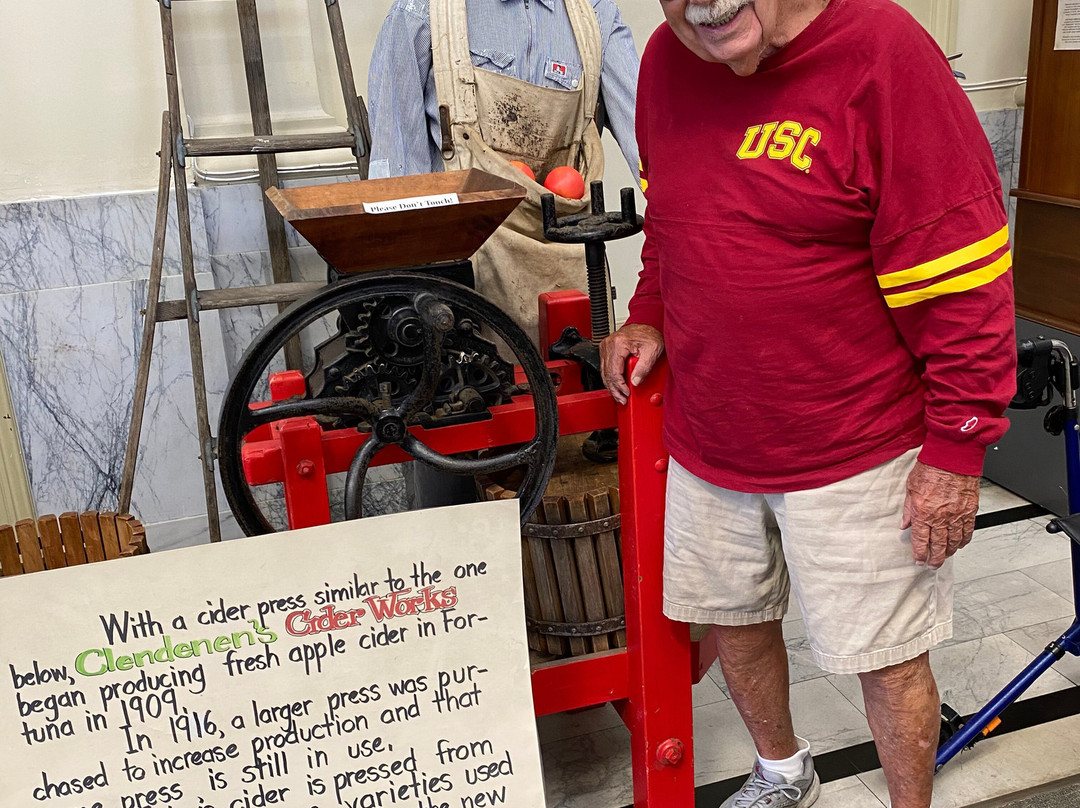 USC
Please Don't Touch!
With a cider press similar to the one
below, Clendenen's Cider Works
began producing fresh apple cider in For-
tuna in 1909.
In 1916, a larger press was pur-
chased to increase production and that
press is still in use.
cider is pressed from
varieties used
the new